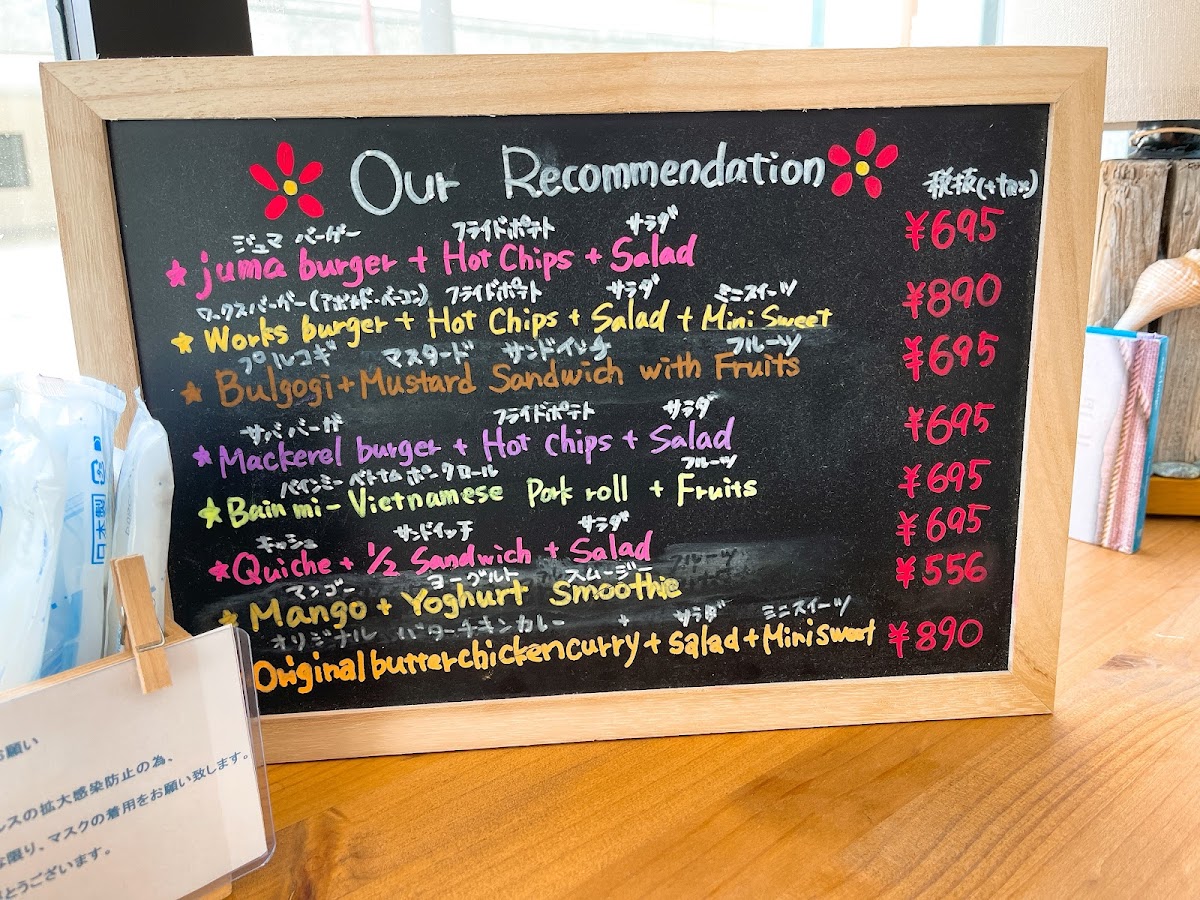 Our Recommendation
税抜(+tax)
ジュマ バーガー フライドポテト サラダ
juma burger + Hot Chips + Salad ¥695
ワークスバーガー(アボカド・ベーコン) フライドポテト サラダ ミニスイーツ
Works burger + Hot Chips + Salad + Mini Sweet ¥890
プルコギ マスタード サンドイッチ フルーツ
Bulgogi + Mustard Sandwich with Fruits ¥695
サババーガー フライドポテト サラダ
Mackerel burger + Hot chips + Salad ¥695
バインミー ベトナム ポークロール フルーツ
Bain mi - Vietnamese Pork roll + Fruits ¥695
キッシュ サンドイッチ サラダ
Quiche + 1/2 Sandwich + Salad ¥695
マンゴー ヨーグルト スムージー
Mango + Yoghurt Smoothie ¥556
オリジナル バターチキンカレー + サラダ ミニスイーツ
Original butter chicken curry + Salad + Mini sweet ¥890
お願い
ルスの拡大感染防止の為、
な限り、マスクの着用をお願い致します。
とうございます。